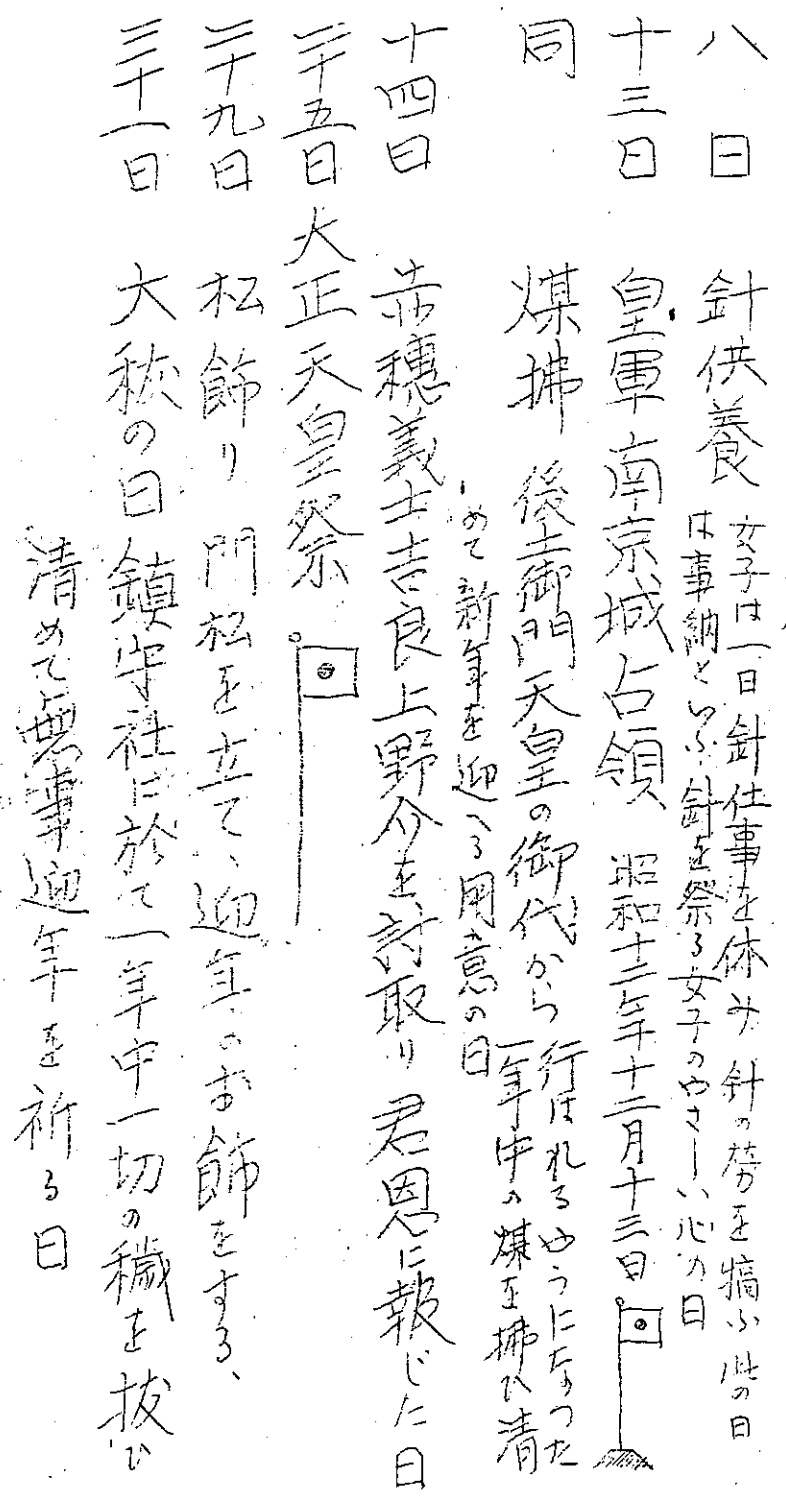 八日 針供養 女子は一日針仕事を休み 針の労を犒ふ此の日
は事納といふ針を祭る女子のやさしい心の日
十三日 皇軍南京城占領 昭和十二年十二月十三日
同 煤拂 後土御門天皇の御代から 行はれるやうになつた
一年中の煤を拂ひ清
めて新年を迎へる用意の日
十四日 赤穗義士吉良上野介を討取り 君恩に報じた日
二十五日 大正天皇祭
二十九日 松飾り 門松を立て、迎年のお飾をする、
三十一日 大祓の日 鎮守社に於て一年中一切の穢を拔ひ
清めて無事迎年を祈る日